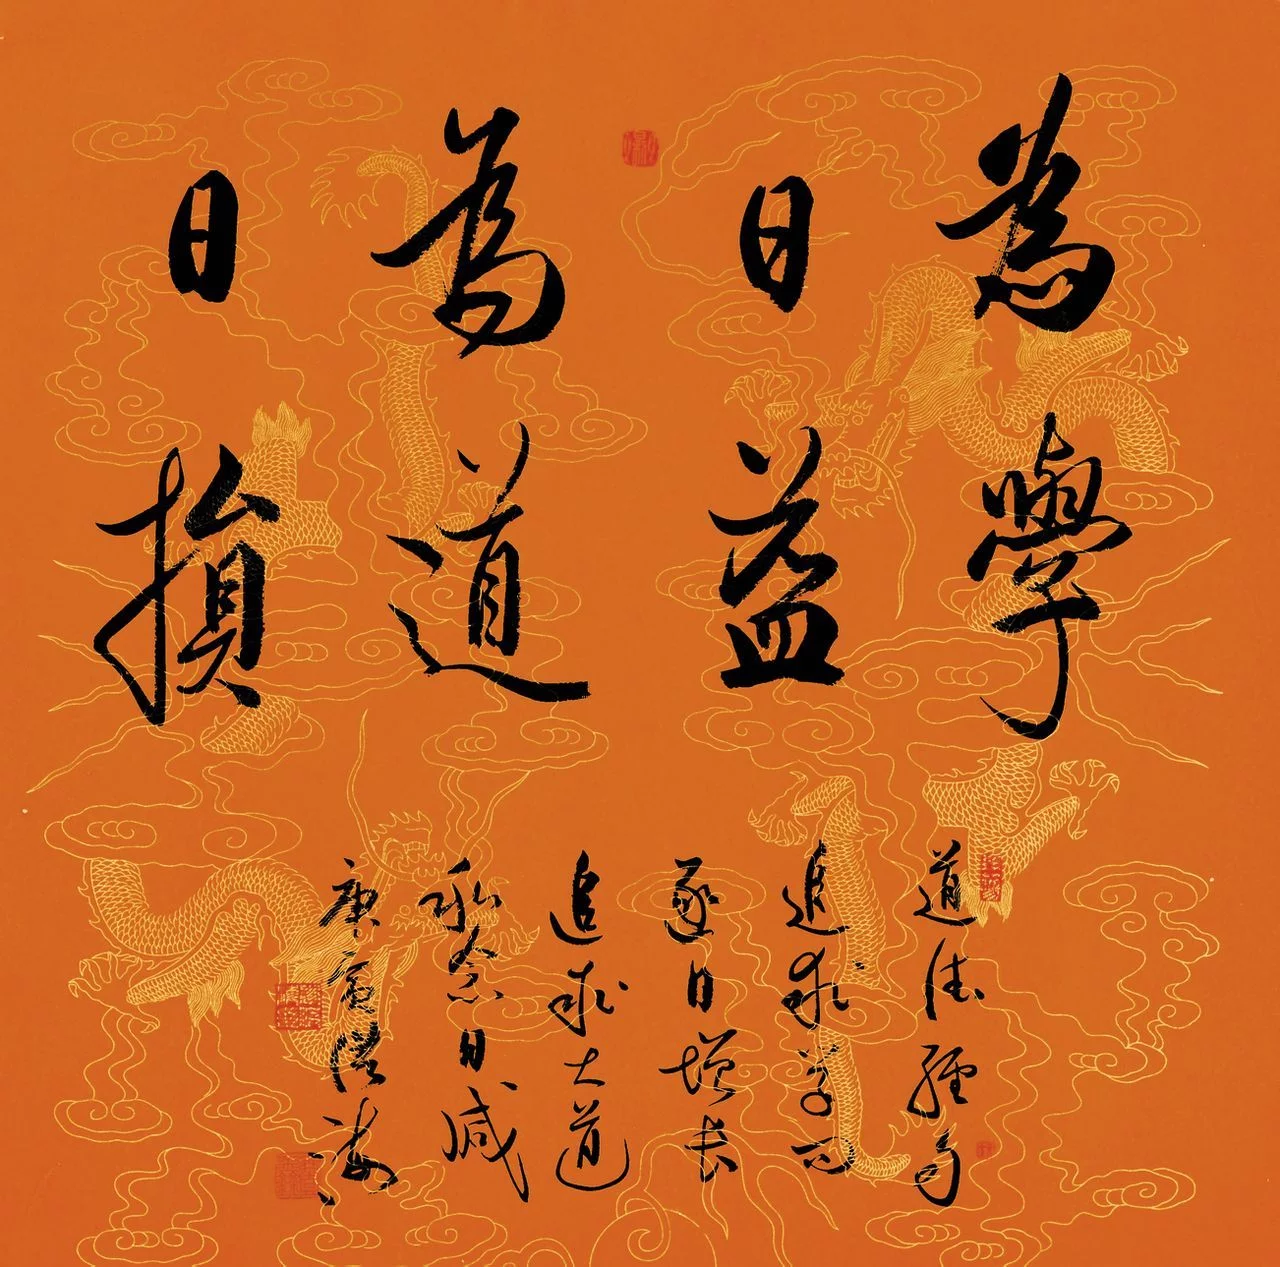 為學
日益
為道
日損
道德經句
追求学问
逐日增長
追求大道
私念日減
庚寅